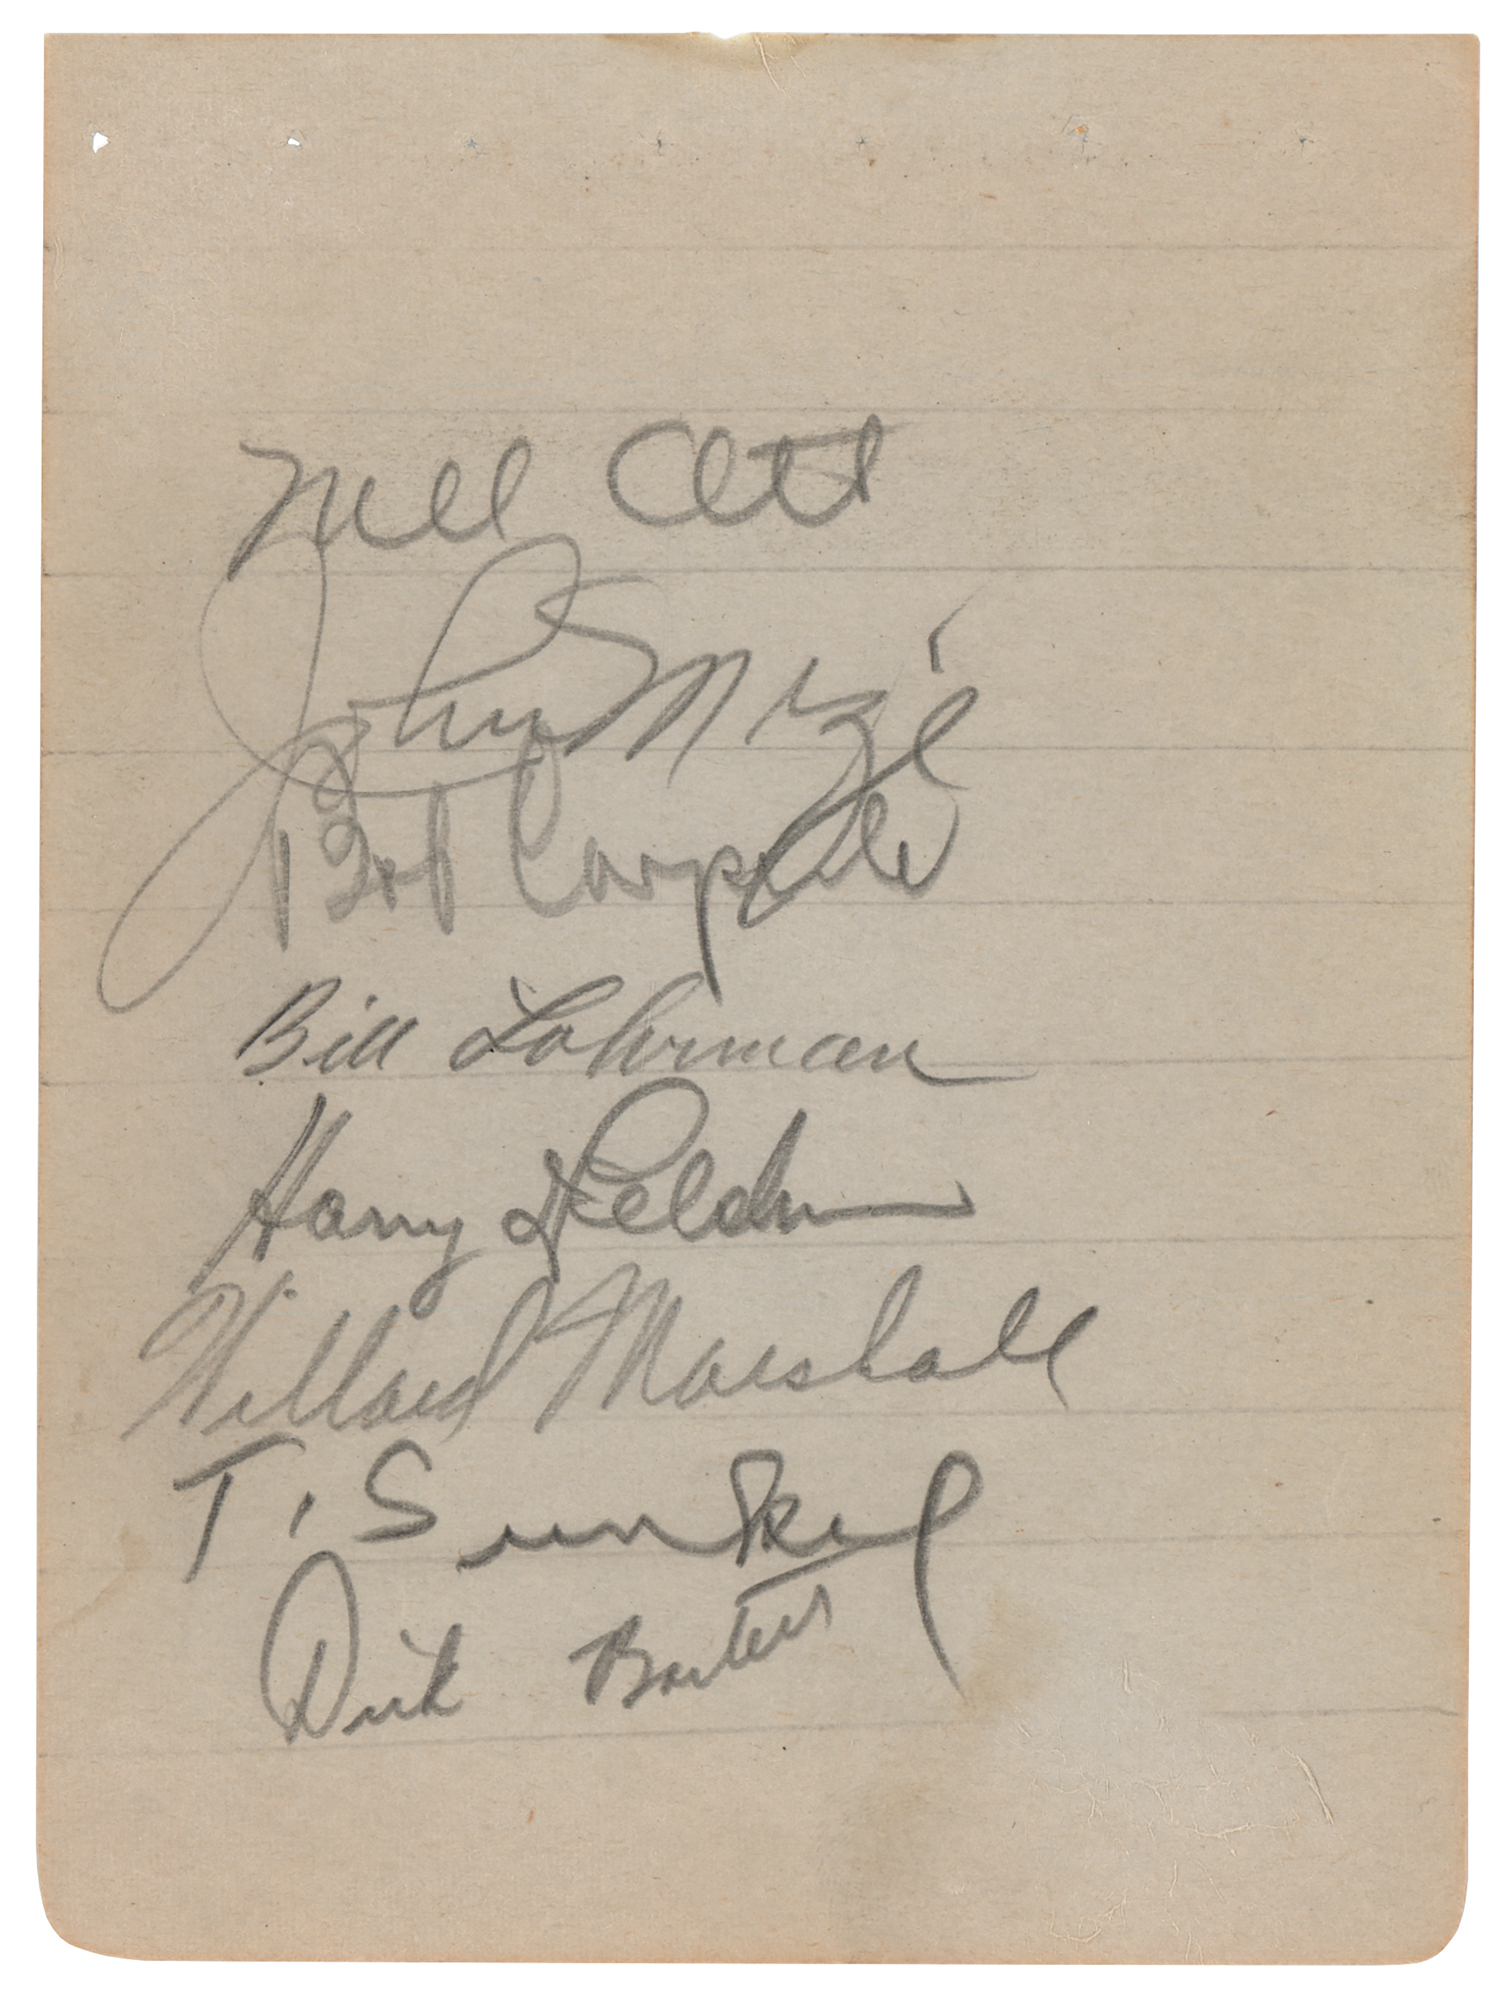 Mell Ott
John Mize
Bob Carpenter
Bill Lohrman
Harry Feldman
Willard Marshall
T. Sunkel
Dick Bartell